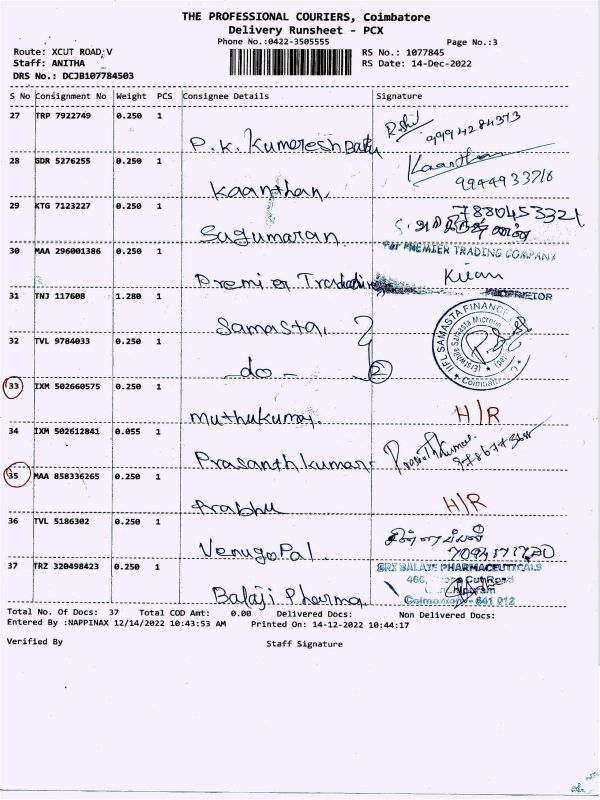 THE PROFESSIONAL COURIERS, Coimbatore
Delivery Runsheet - PCX
Phone No.:0422-3505555
Page No.:3
Route: XCUT ROAD,V
RS No.: 1077845
Staff: ANITHA
RS Date: 14-Dec-2022
DRS No.: DCJB107784503
S No Consignment No Weight PCS Consignee Details Signature
27 TRP 7922749 0.250 1
P.K. Kumaresh Babu
28 GDR 5276255 0.250 1
Kaanthan
Kaanthan.
29 KTG 7123227 0.250 1
7880453321
Sugumaran
30 MAA 296001386 0.250 1
For PREMIER TRADING COMPANY
Premier Trading
Kiran
PROPRIETOR
31 TNJ 117608 1.280 1
Samasta.
IIFL SAMASTA FINANCE
(erstwhile Samasta Microfin
★ Coimbat
32 TVL 9784033 0.250 1
do
2
33 IXM 502660575 0.250 1
Muthukumar.
H/R
34 IXM 502612841 0.055 1
Prasanth kumar
35 MAA 858336265 0.250 1
Prabhu
H/R
36 TVL 5186302 0.250 1
Venugopal.
37 TRZ 320498423 0.250 1
SRI BALAJE PHARMACEUTICALS
466, Cut Road
Balaji Pharma.
Coimbatore - 641 012
Total No. Of Docs: 37 Total COD Amt: 0.00 Delivered Docs: Non Delivered Docs:
Entered By :NAPPINAX 12/14/2022 10:43:53 AM Printed On: 14-12-2022 10:44:17
Verified By Staff Signature